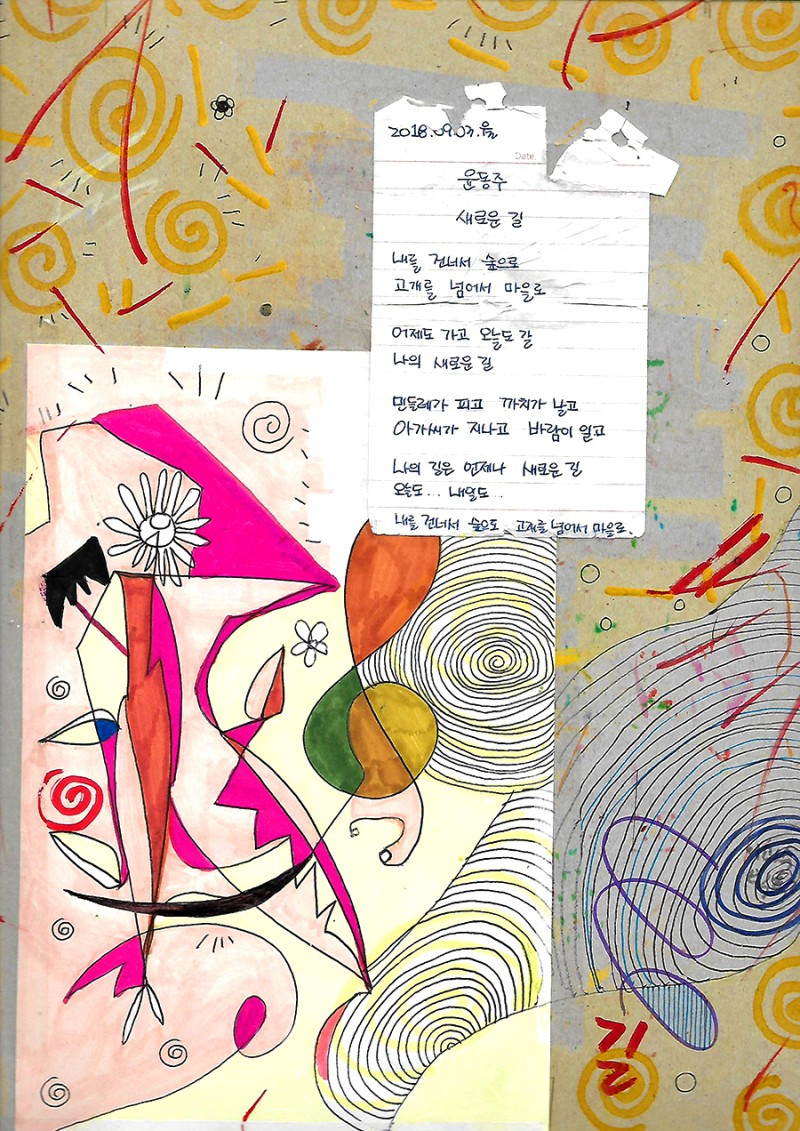 2018.09.03.월
Date.
윤동주
새로운 길
내를 건너서 숲으로
고개를 넘어서 마을로
어제도 가고 오늘도 갈
나의 새로운 길
민들레가 피고 까치가 날고
아가씨가 지나고 바람이 일고
나의 길은 언제나 새로운 길
오늘도... 내일도..
내를 건너서 숲으로 고개를 넘어서 마을로.
길